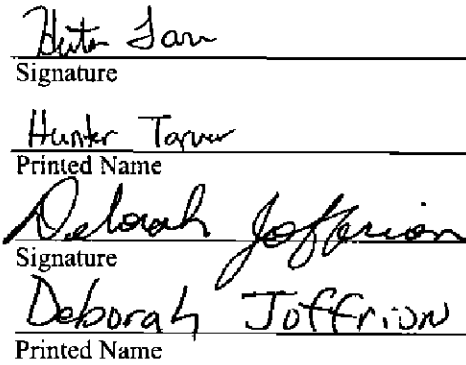 Hunter Tarver
Signature
Hunter Tarver
Printed Name
Deborah Joffrion
Signature
Deborah Joffrion
Printed Name